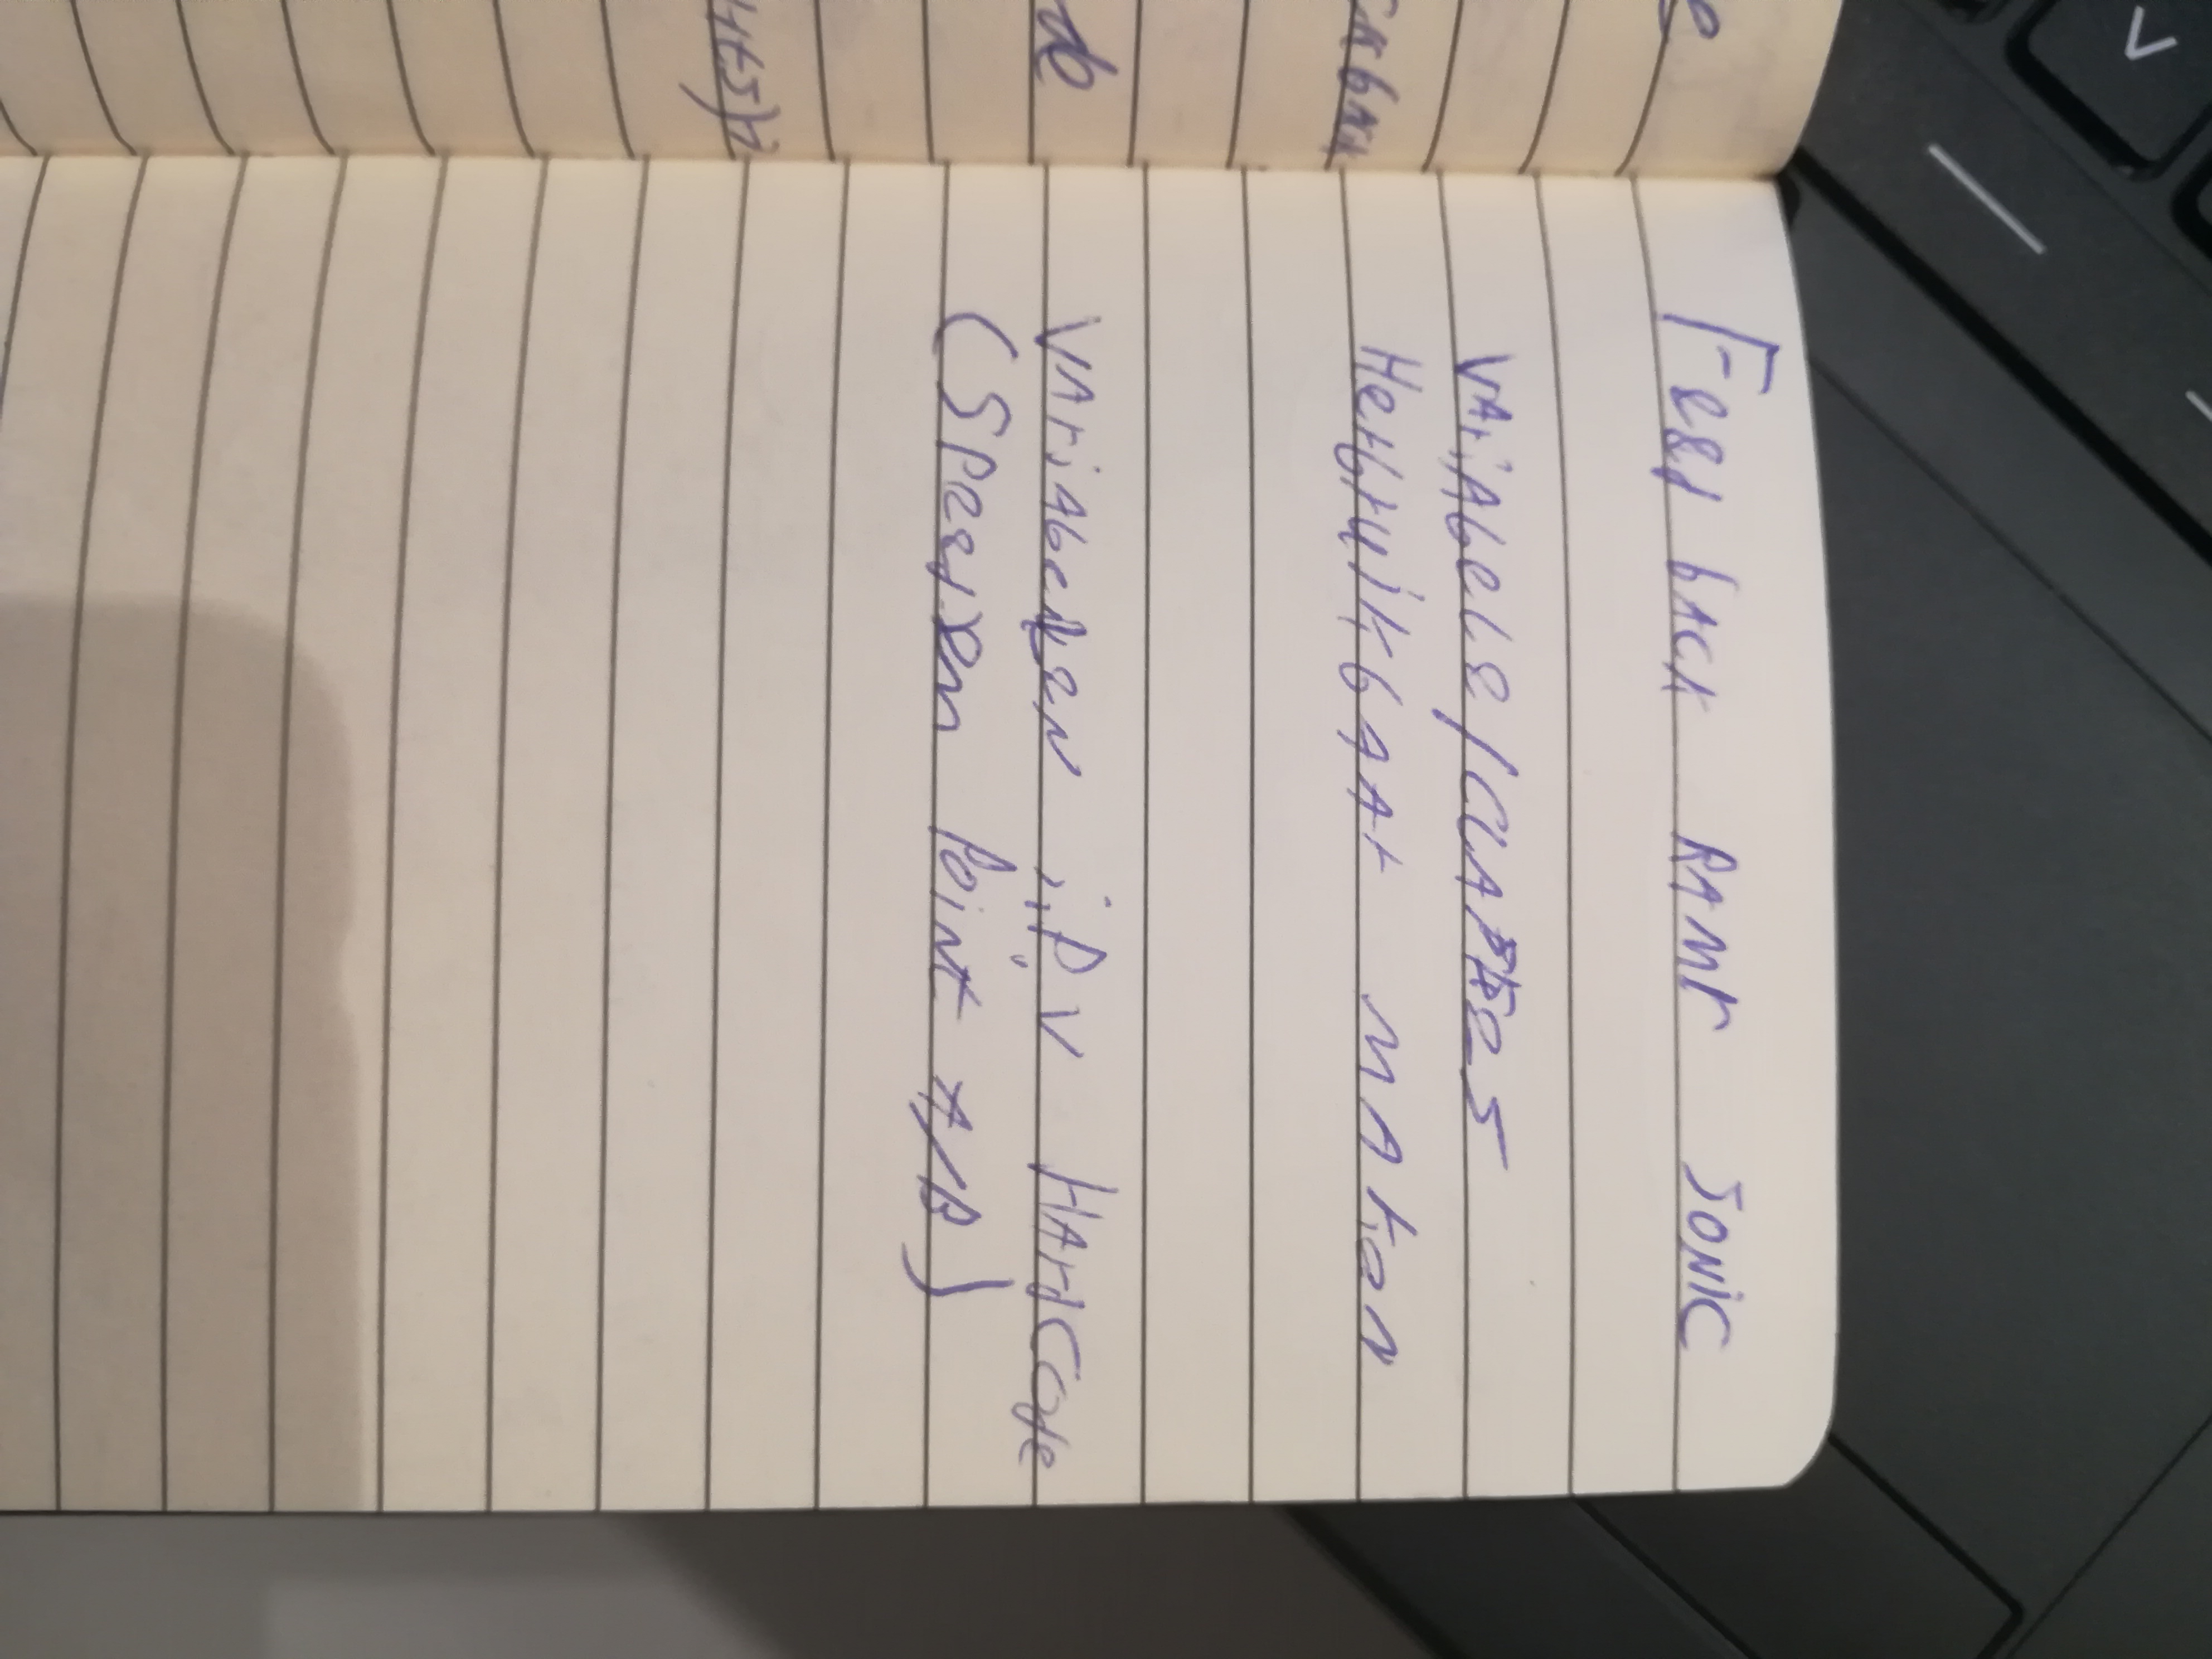 Feedback RAMP SONIC
VAriAbele/CLASSES
HerbruikbAAr mAken
VAriAbelen i.p.v HArdCode
(Speed en Point A/B)